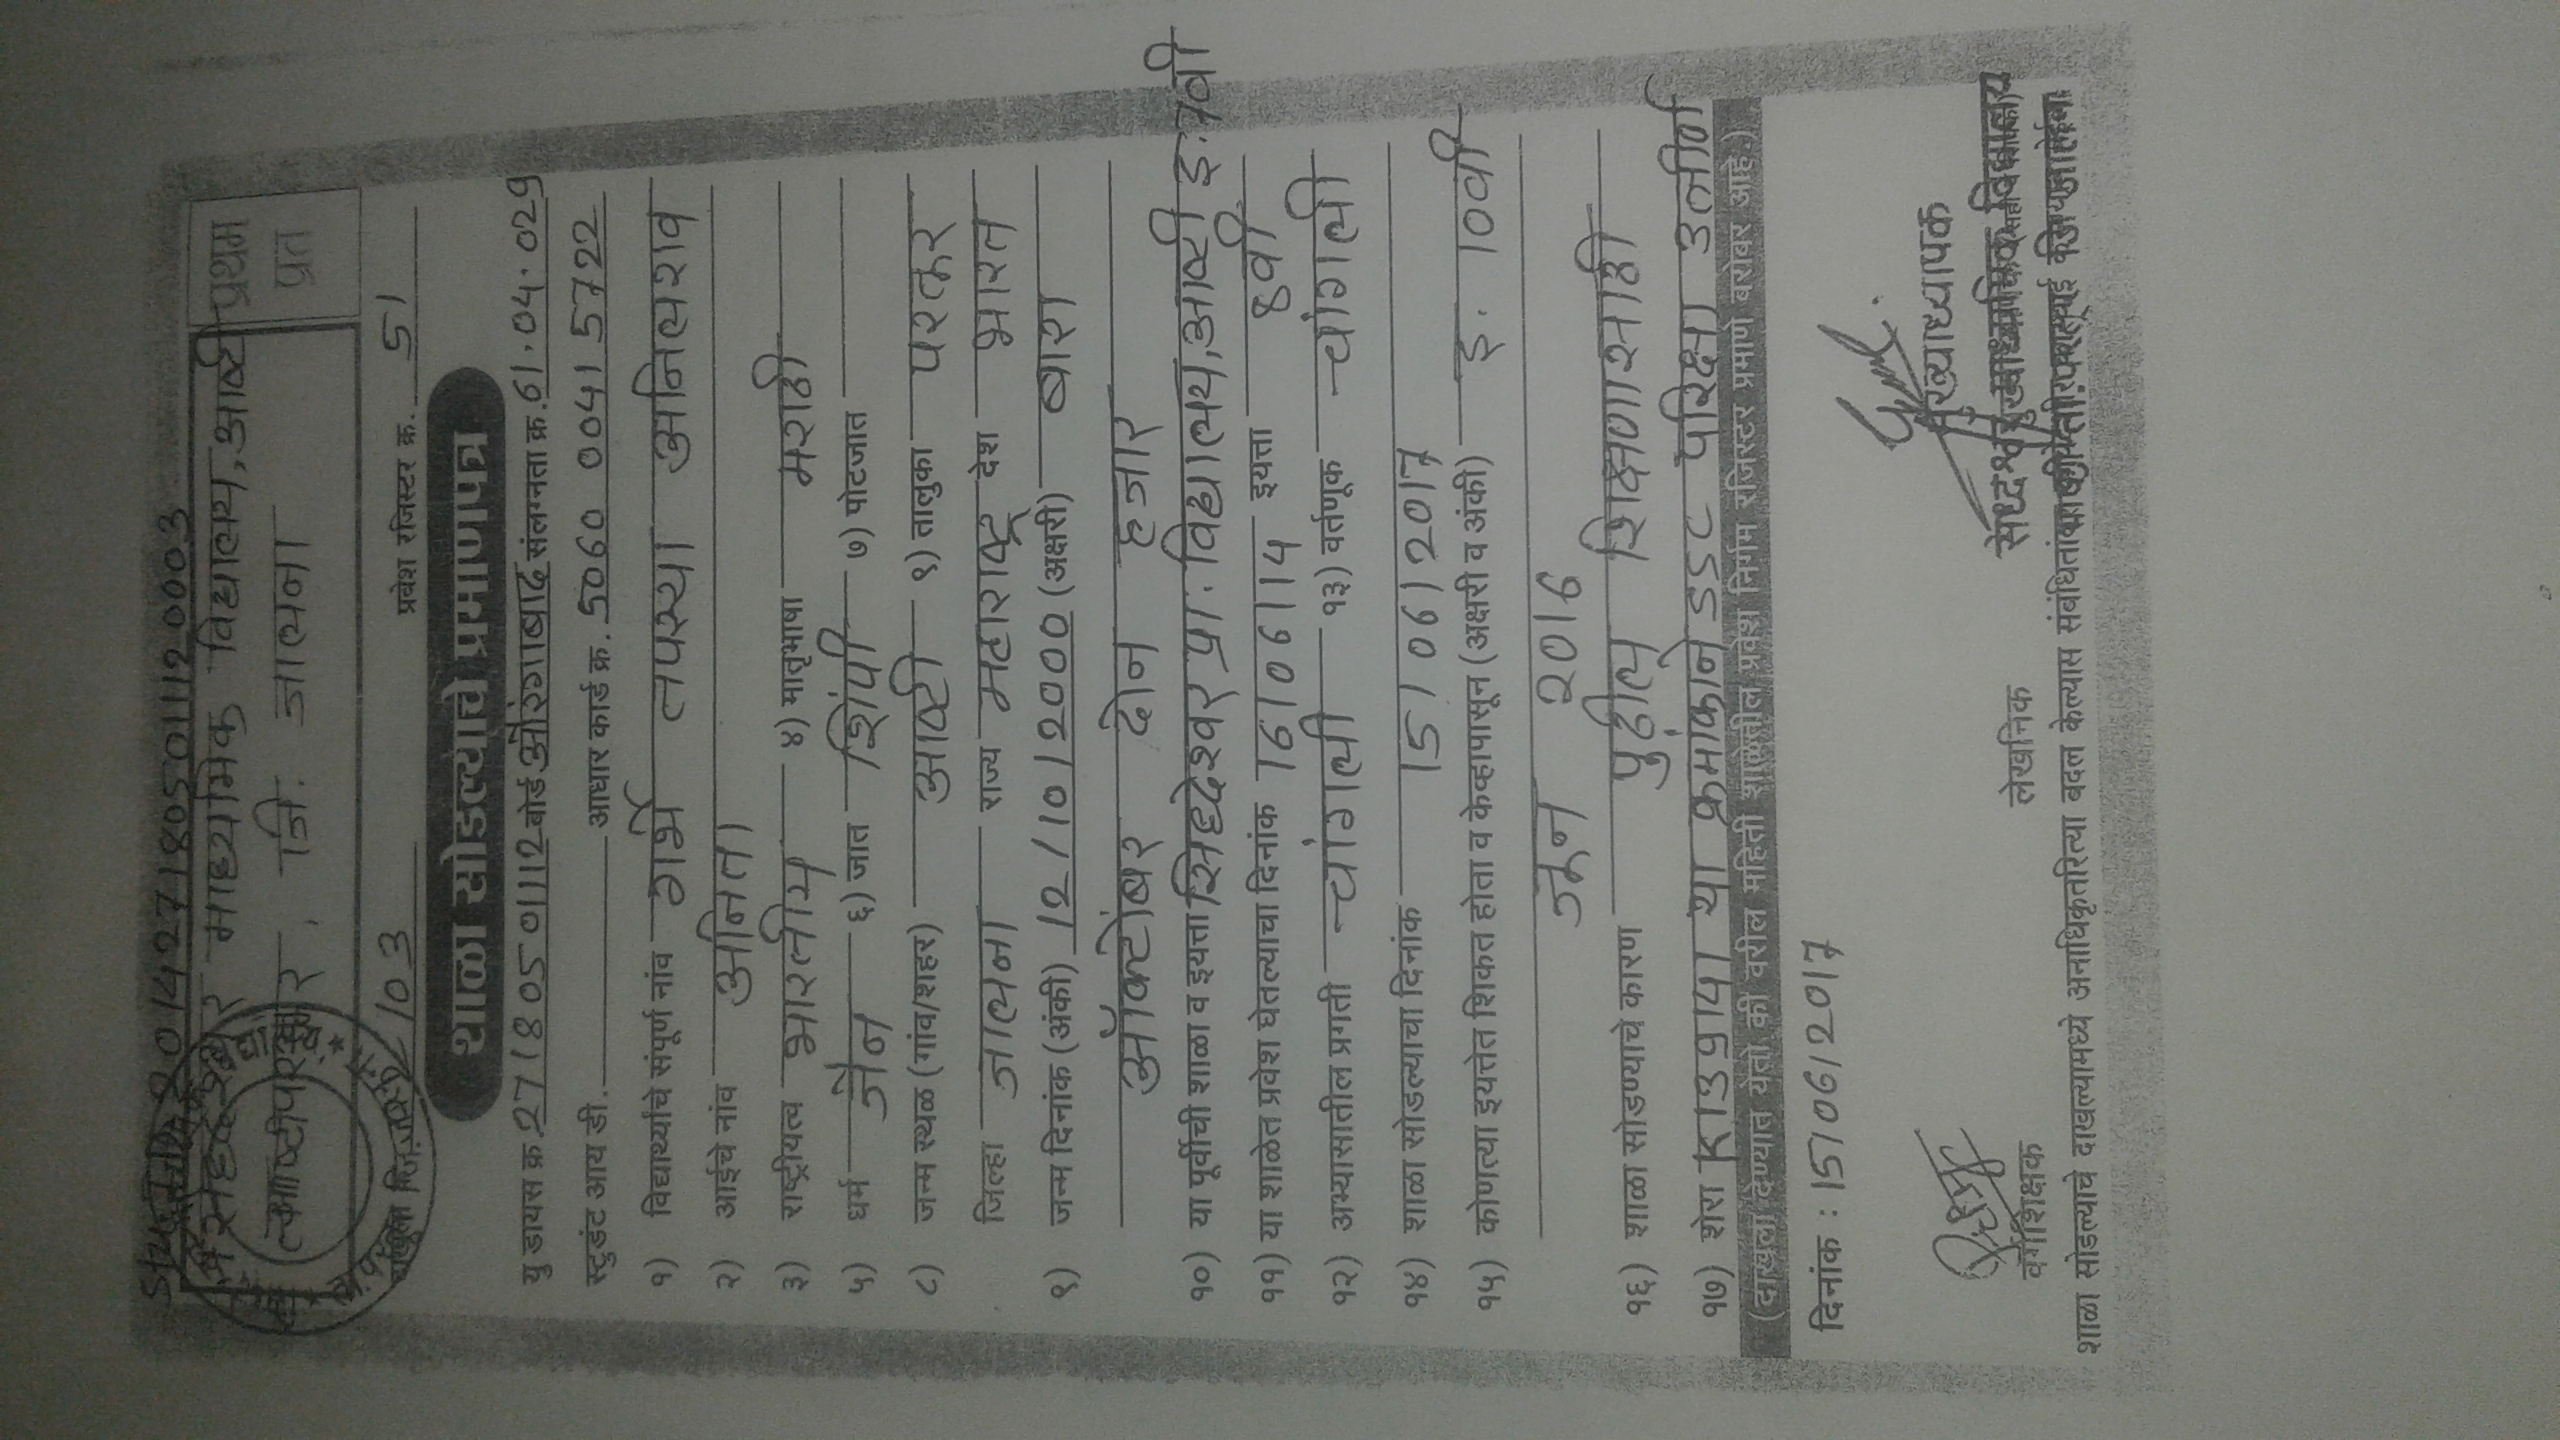 सरल आय डी 2014271805011120003
सिद्धेश्वर माध्यमिक विद्यालय, आष्टी
प्रथम प्रत
जि. जालना
103 प्रवेश रजिस्टर क्र. 51
शाळा सोडल्याचे प्रमाणपत्र
यु डायस क्र. 27180501112 बोर्ड औरंगाबाद संलग्नता क्र. 61.04.029
स्टुडंट आय डी. आधार कार्ड क्र. 5060 0041 5722
१) विद्यार्थ्याचे संपुर्ण नांव ठामे तपस्या अनिलराव
२) आईचे नांव अनिता
३) राष्ट्रीयत्व भारतीय ४) मातृभाषा मराठी
५) धर्म जैन ६) जात शिंपी ७) पोटजात
८) जन्म स्थळ (गांव/शहर) आष्टी ९) तालुका परतूर
जिल्हा जालना राज्य महाराष्ट्र देश भारत
९) जन्म दिनांक (अंकी) 12/10/2000 (अक्षरी) बारा
ऑक्टोंबर दोन हजार
१०) या पुर्वीची शाळा व इयत्ता सिद्धेश्वर प्रा. विद्यालय, आष्टी इ. 7वी
११) या शाळेत प्रवेश घेतल्याचा दिनांक 16/06/14 इयत्ता 8वी
१२) अभ्यासातील प्रगती चांगली १३) वर्तणूक चांगली
१४) शाळा सोडल्याचा दिनांक 15/06/2017
१५) कोणत्या इयत्तेत शिकत होता व केव्हापासून (अक्षरी व अंकी) इ. 10वी
जून 2016
१६) शाळा सोडण्याचे कारण पुढील शिक्षणासाठी
१७) शेरा या क्रमांकाने SSC परिक्षा उत्तीर्ण
(दाखला देण्यात येतो की वरील माहिती शाळेतील प्रवेश निर्गम रजिस्टर प्रमाणे बरोबर आहे.)
दिनांक : 15/06/2017
वर्गशिक्षक लेखनिक मुख्याध्यापक
शाळा सोडल्याचे दाखल्यामध्ये अनाधिकृतरित्या बदल केल्यास संबंधितांवर